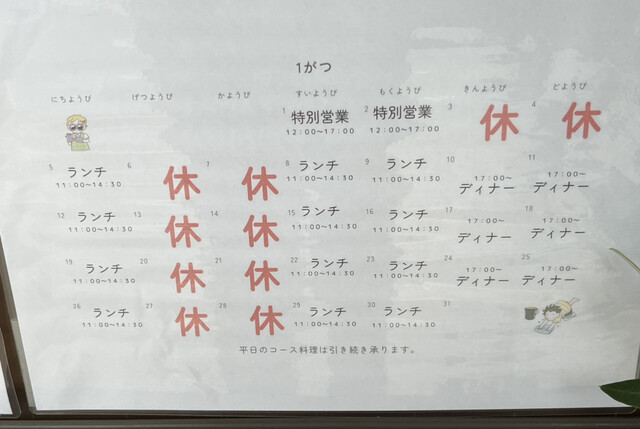 1がつ
にちようび げつようび かようび すいようび もくようび きんようび どようび
1 特別営業 2 特別営業 3 休 4 休
12:00~17:00 12:00~17:00
5 ランチ 6 休 7 休 8 ランチ 9 ランチ 10 17:00~ 11 17:00~
11:00~14:30 11:00~14:30 11:00~14:30 ディナー ディナー
12 ランチ 13 休 14 休 15 ランチ 16 ランチ 17 17:00~ 18 17:00~
11:00~14:30 11:00~14:30 11:00~14:30 ディナー ディナー
19 ランチ 20 休 21 休 22 ランチ 23 ランチ 24 17:00~ 25 17:00~
11:00~14:30 11:00~14:30 11:00~14:30 ディナー ディナー
26 ランチ 27 休 28 休 29 ランチ 30 ランチ 31
11:00~14:30 11:00~14:30 11:00~14:30
平日のコース料理は引き続き承ります。